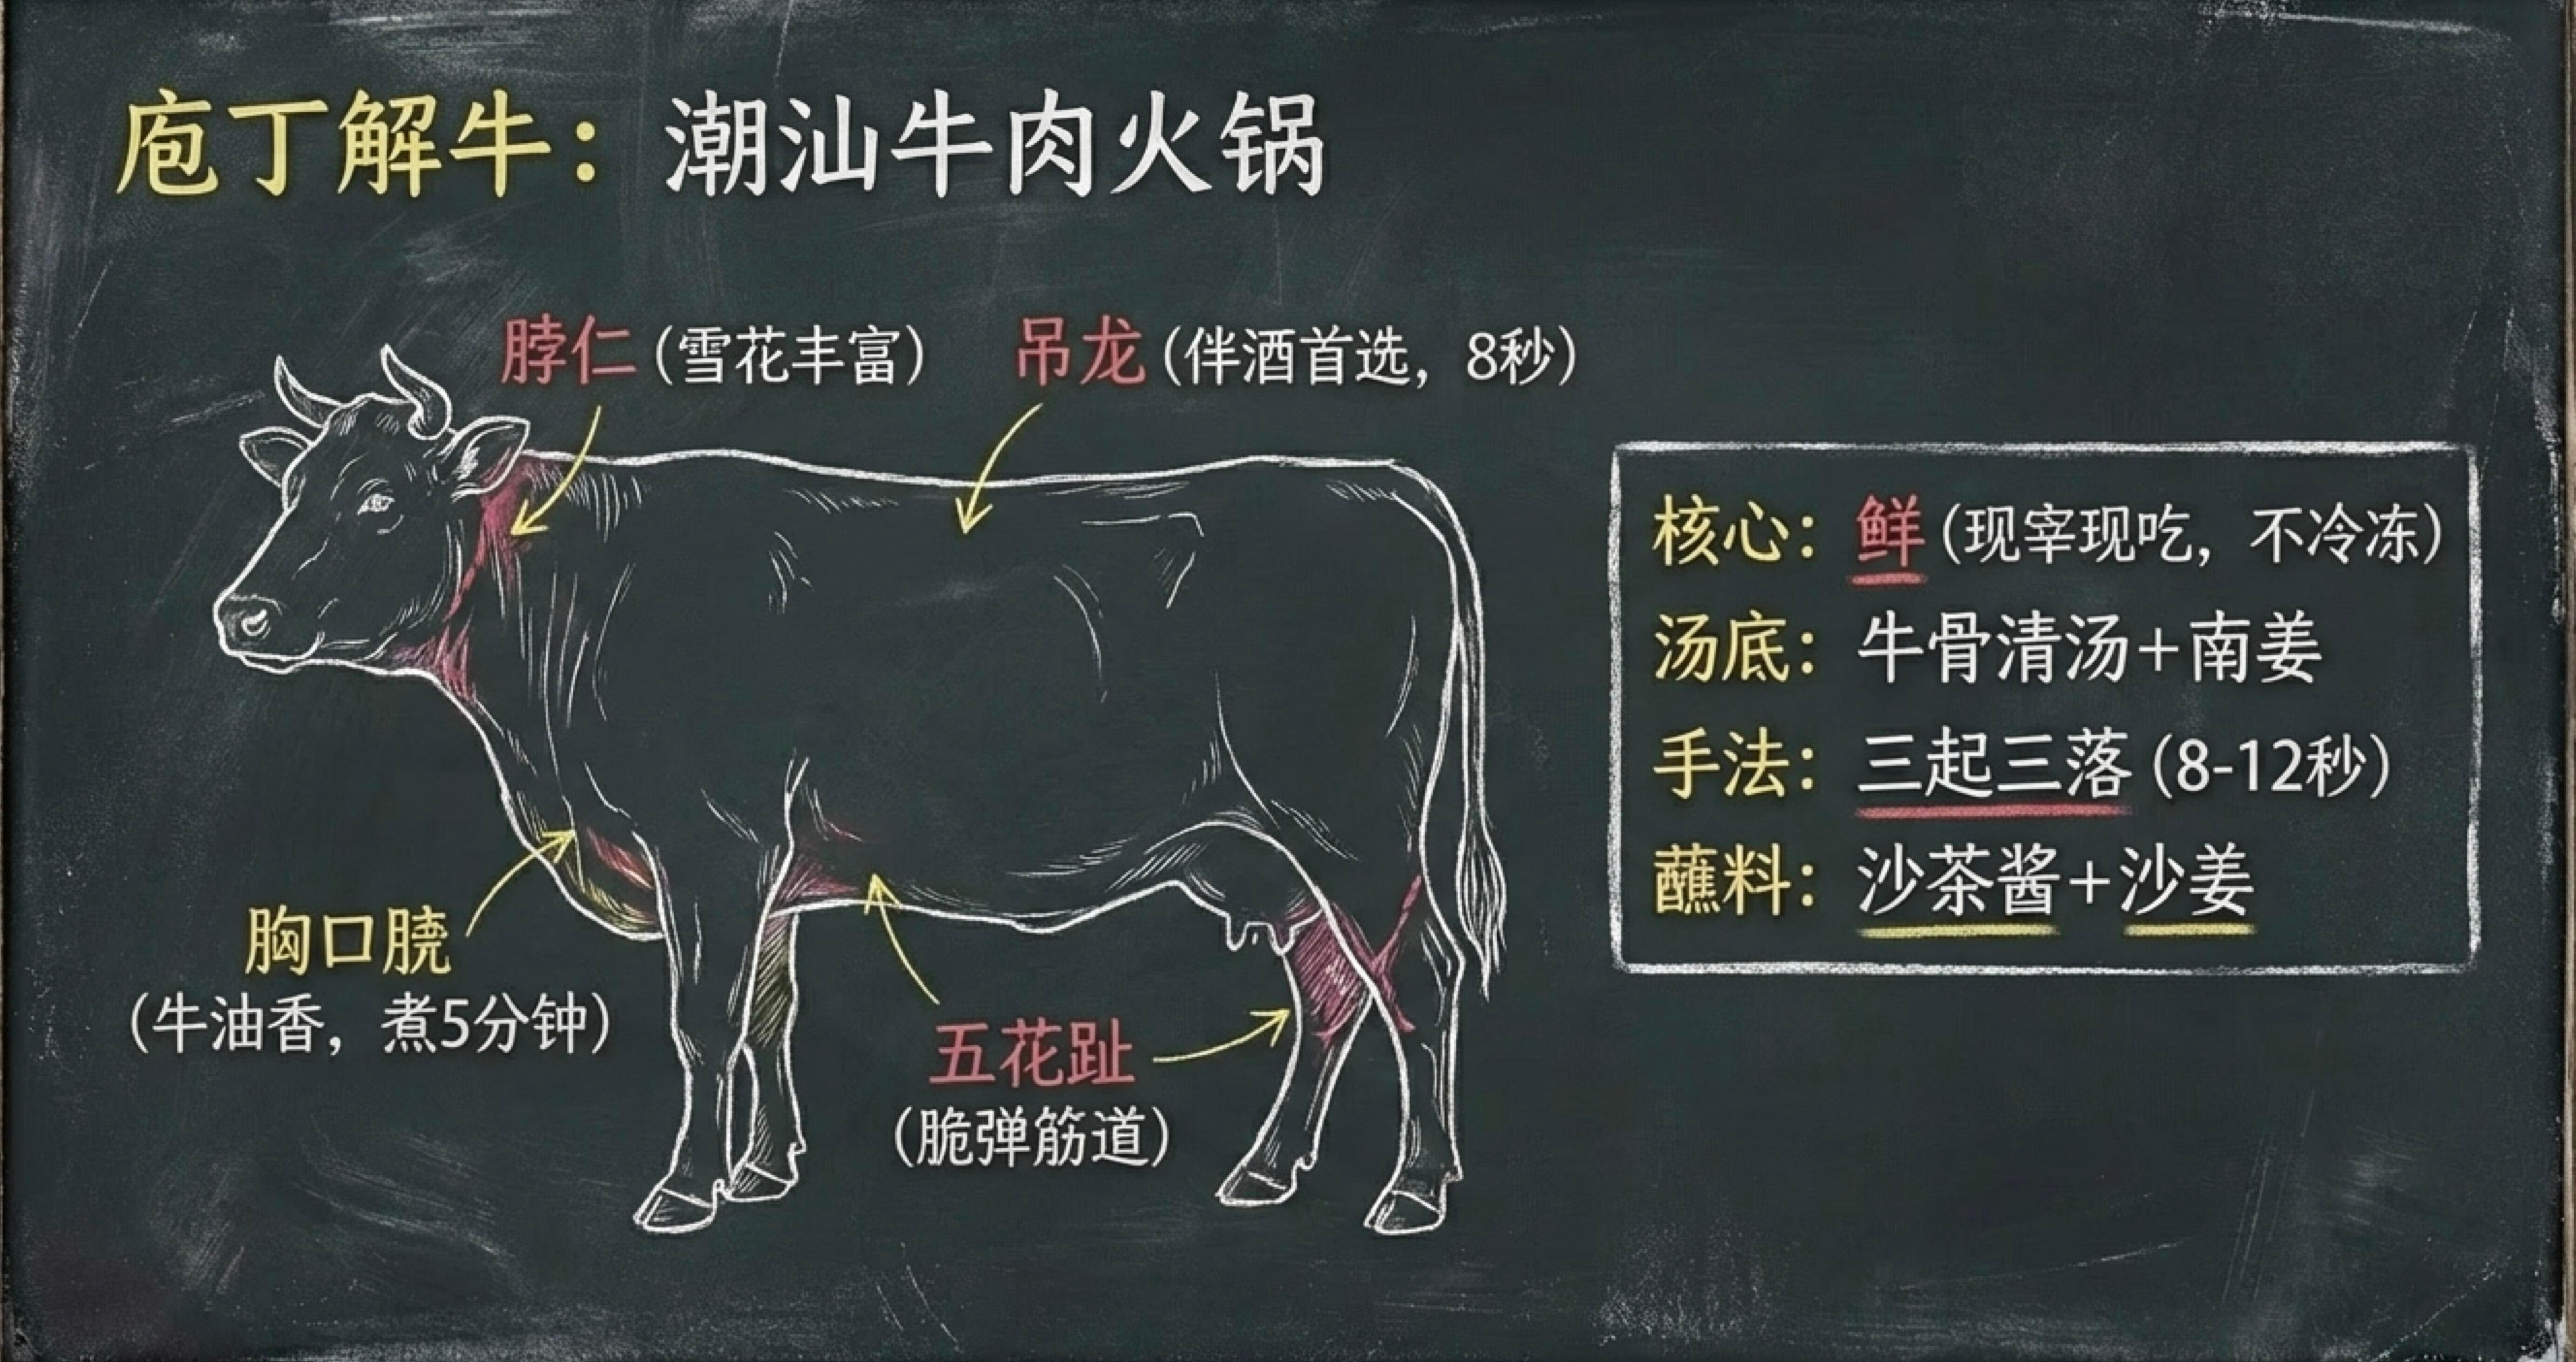 庖丁解牛：潮汕牛肉火锅
脖仁（雪花丰富）
吊龙（伴酒首选，8秒）
胸口朥
（牛油香，煮5分钟）
五花趾
（脆弹筋道）
核心：鲜（现宰现吃，不冷冻）
汤底：牛骨清汤+南姜
手法：三起三落（8-12秒）
蘸料：沙茶酱+沙姜